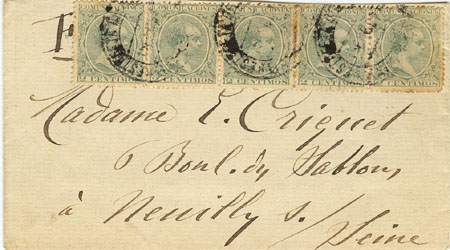 2 CENTIMOS 2 CENTIMOS 2 CENTIMOS 2 CENTIMOS 2 CENTIMOS
Madame E. Criquet
6 Boul. du Sablons
à Neuilly s/
Seine